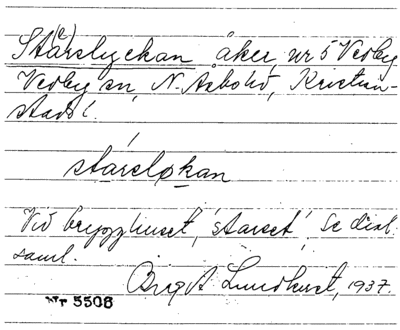 Står(e)slyckan åker, nr 5 Vedby
Vedby sn, N. Åsbohd, Kristian-
stads l.
stársløkan
Vid brygghuset, 'starset', se dial.
saml.
Birgit Lundquist, 1937.
5508